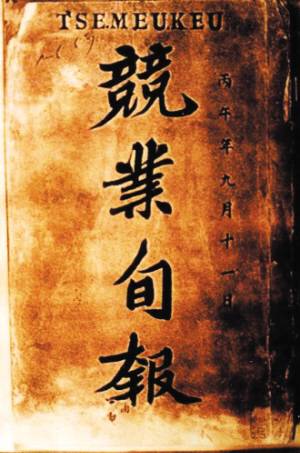 TSEMEUKEU
丙午年九月十一日
競業旬報